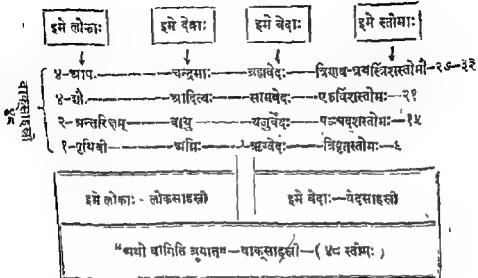 इमे लोकाः इमे देवाः इमे वेदाः इमे स्तोमाः
४-आप. चन्द्रमाः ब्रह्मवेदः त्रिणव-त्रयस्त्रिंशस्तोमौ-२७-३३
४-द्यौ. आदित्यः सामवेदः एकविंशस्तोमः-२१
२-अन्तरिक्षम् वायु यजुर्वेदः पञ्चदशस्तोमः-१५
१-पृथिवी अग्निः ऋग्वेदः त्रिवृत्स्तोमः-६
वाक्साहस्री
४८
इमे लोकाः-लोकसाहस्री इमे वेदाः-वेदसाहस्री
"अथो वागिति ब्रूयात्"-वाक्साहस्री-(४८ स्तोमः)